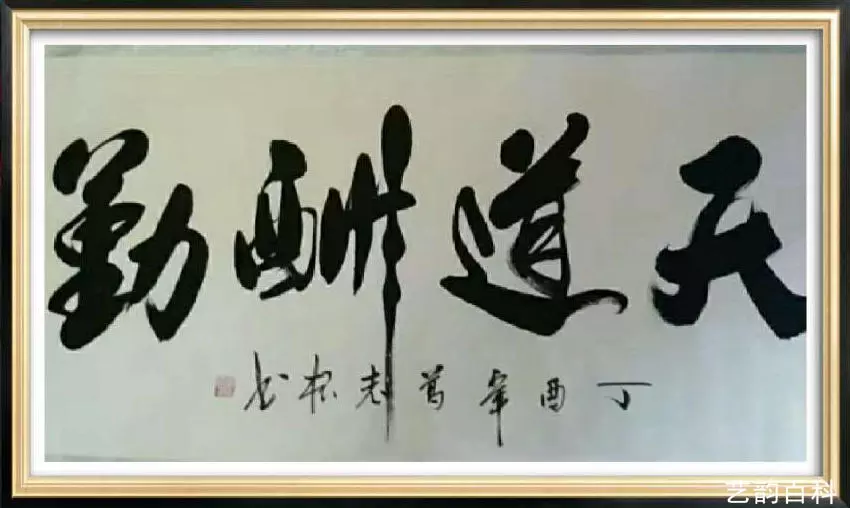 天道酬勤
丁酉年葛志松书
艺韵百科